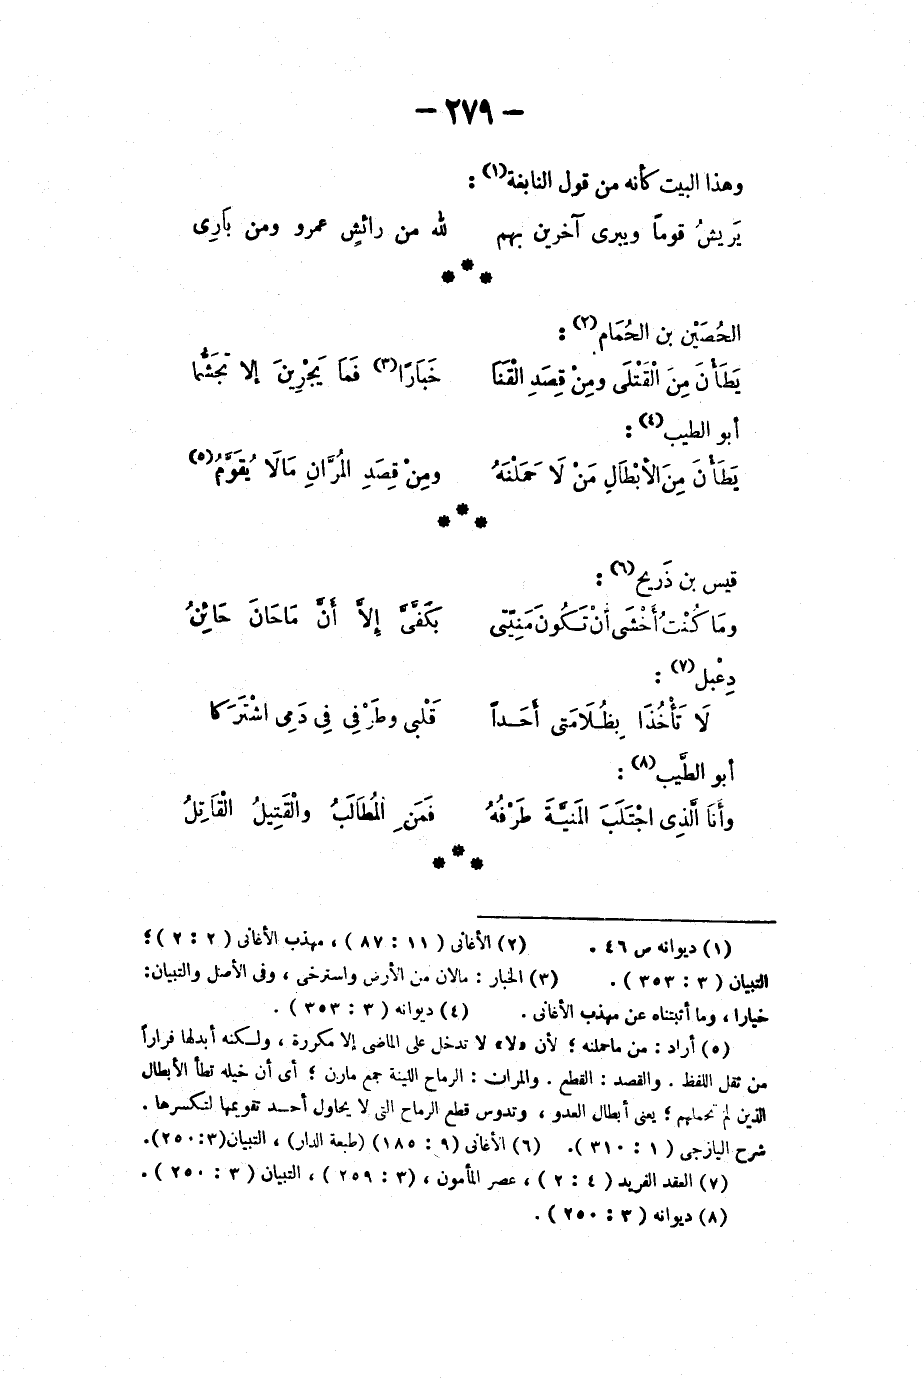 — ٢٧٩ —
وهذا البيت كأنه من قول النابغة(١) :
يَريشُ قوماً ويبرى آخرين بهم لله من رائشٍ عمرو ومن بَارِى
***
الحُصَيْن بن الحُمَام(٢) :
يَطَأْنَ مِنَ الْقَتْلَى ومِنْ قِصَدِ القَنَا خَبَارًا(٣) فَمَا يَجْرِينَ إلا تَجَشُّما
أبو الطيب(٤) :
يَطَأْنَ مِنَ الأَبْطَالِ مَنْ لَا حَمَلْنَهُ ومِنْ قِصَدِ المُرَّانِ مَالَا يُقَوَّمُ(٥)
***
قيس بن ذَريح(٦) :
ومَا كُنْتُ أَخْشَى أَنْ تَكُونَ مَنِيّتى بكَفَّىَّ إلاَّ أَنَّ مَاحَانَ حَائِنُ
دِعْبل(٧) :
لَا تَأْخُذَا بِظُلَامَتى أَحَداً قَلْبى وطَرْفِى فِى دَمِى اشْتَرَكَا
أبو الطَّيب(٨) :
وأَنَا الَّذِى اجْتَلَبَ المَنيَّةَ طَرْفُهُ فَمَنِ المُطَالَبُ والْقَتِيلُ القَاتِلُ
***
(١) ديوانه ص ٤٦ . (٢) الأغانى ( ١١ : ٨٧ ) ، مهذب الأغانى ( ٢ : ٢ ) ؛
التبيان ( ٣ : ٣٥٣ ) . (٣) الخبار : مالان من الأرض واسترخى ، وفى الأصل والتبيان:
خيارا ، وما أثبتناه عن مهذب الأغانى . (٤) ديوانه ( ٣ : ٣٥٣ ) .
(٥) أراد : من ماحملنه ؛ لأن «لا» لا تدخل على الماضى إلا مكررة ، ولكنه أبدلها فراراً
من ثقل اللفظ . والقصد : القطع . والمران : الرماح اللينة جمع مارن ؛ أى أن خيله تطأ الأبطال
الذين لم تحملهم ؛ يعنى أبطال العدو ، وتدوس قطع الرماح التى لا يحاول أحد تقويمها لتكسرها .
شرح اليازجى ( ١ : ٣١٠ ). (٦) الأغانى (٩ : ١٨٥) (طبعة الدار) ، التبيان(٣:٢٥٠).
(٧) العقد الفريد ( ٤ : ٢ ) ، عصر المأمون ، (٣ : ٢٥٩ ) ، التبيان ( ٣ : ٢٥٠ ) .
(٨) ديوانه ( ٣ : ٢٥٠ ) .